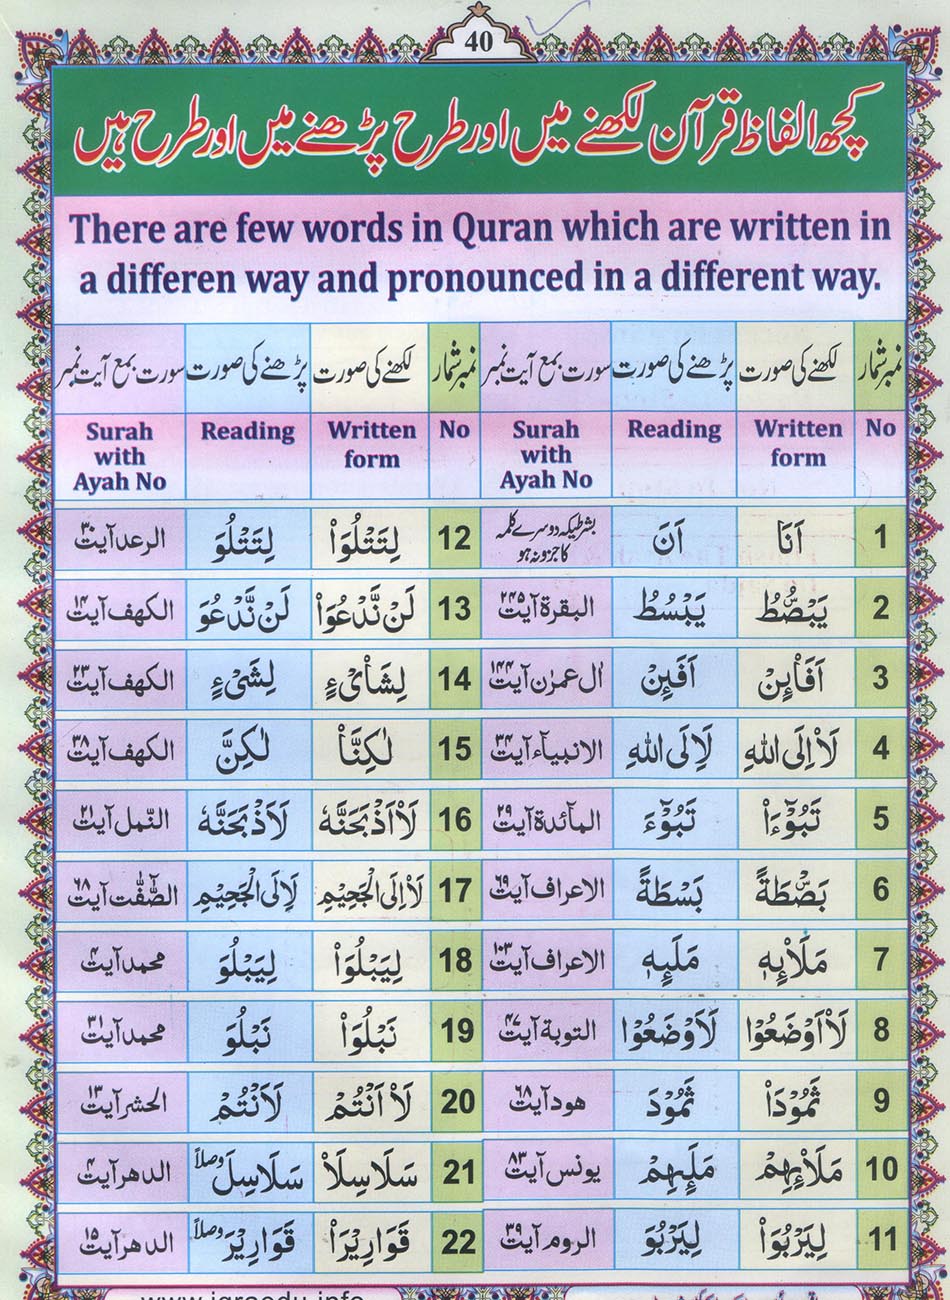 40
کچھ الفاظ قرآن لکھنے میں اور طرح پڑھنے میں اور طرح ہیں
There are few words in Quran which are written in
a differen way and pronounced in a different way.
نمبر شمار لکھنے کی صورت پڑھنے کی صورت سورت بمع آیت نمبر نمبر شمار لکھنے کی صورت پڑھنے کی صورت سورت بمع آیت نمبر
No Written form Reading Surah with Ayah No No Written form Reading Surah with Ayah No
1 اَنَا اَنَ بشرطیکہ دوسرے کلمہ کا جزو نہ ہو 12 لِتَتْلُوَا۟ لِتَتْلُوَ الرعد آیت ۳۰
2 يَبْصُۜطُ يَبْسُطُ البقرة آیت ۲۴۵ 13 لَنْ نَّدْعُوَا۟ لَنْ نَّدْعُوَ الكهف آیت ۱۴
3 اَفَا۟ئِنْ اَفَئِنْ اٰل عمرٰن آیت ۱۴۴ 14 لِشَا۟یْءٍ لِشَیْءٍ الكهف آیت ۲۳
4 لَا۟اِلَى اللهِ لَاِلَى اللهِ الانبياء آیت ۳۴ 15 لٰكِنَّا۟ لٰكِنَّ الكهف آیت ۳۸
5 تَبُوْٓءَا۟ تَبُوْٓءَ المآئدة آیت ۲۹ 16 لَا۟اَذْبَحَنَّهٗ لَاَذْبَحَنَّهٗ النّمل آیت ۲۱
6 بَصْۜطَةً بَسْطَةً الاعراف آیت ۶۹ 17 لَا۟اِلَى الْجَحِيْمِ لَاِلَى الْجَحِيْمِ الصّٰٓفّٰت آیت ۶۸
7 مَلَا۟ئِهٖ مَلَئِهٖ الاعراف آیت ۱۰۳ 18 لِيَبْلُوَا۟ لِيَبْلُوَ محمد آیت ۴
8 لَا۟اَوْضَعُوْا لَاَوْضَعُوْا التوبة آیت ۴۷ 19 نَبْلُوَا۟ نَبْلُوَ محمد آیت ۳۱
9 ثَمُوْدَا۟ ثَمُوْدَ هود آیت ۶۸ 20 لَا۟اَنْتُمْ لَاَنْتُمْ الحشر آیت ۱۳
10 مَلَا۟ئِهِمْ مَلَئِهِمْ يونس آیت ۸۳ 21 سَلَاسِلَا۟ سَلَاسِلَ وصلاً الدهر آیت ۴
11 لِيَرْبُوَا۟ لِيَرْبُوَ الروم آیت ۳۹ 22 قَوَارِيْرَا۟ قَوَارِيْرَ وصلاً الدهر آیت ۱۵
www.iqraedu.info